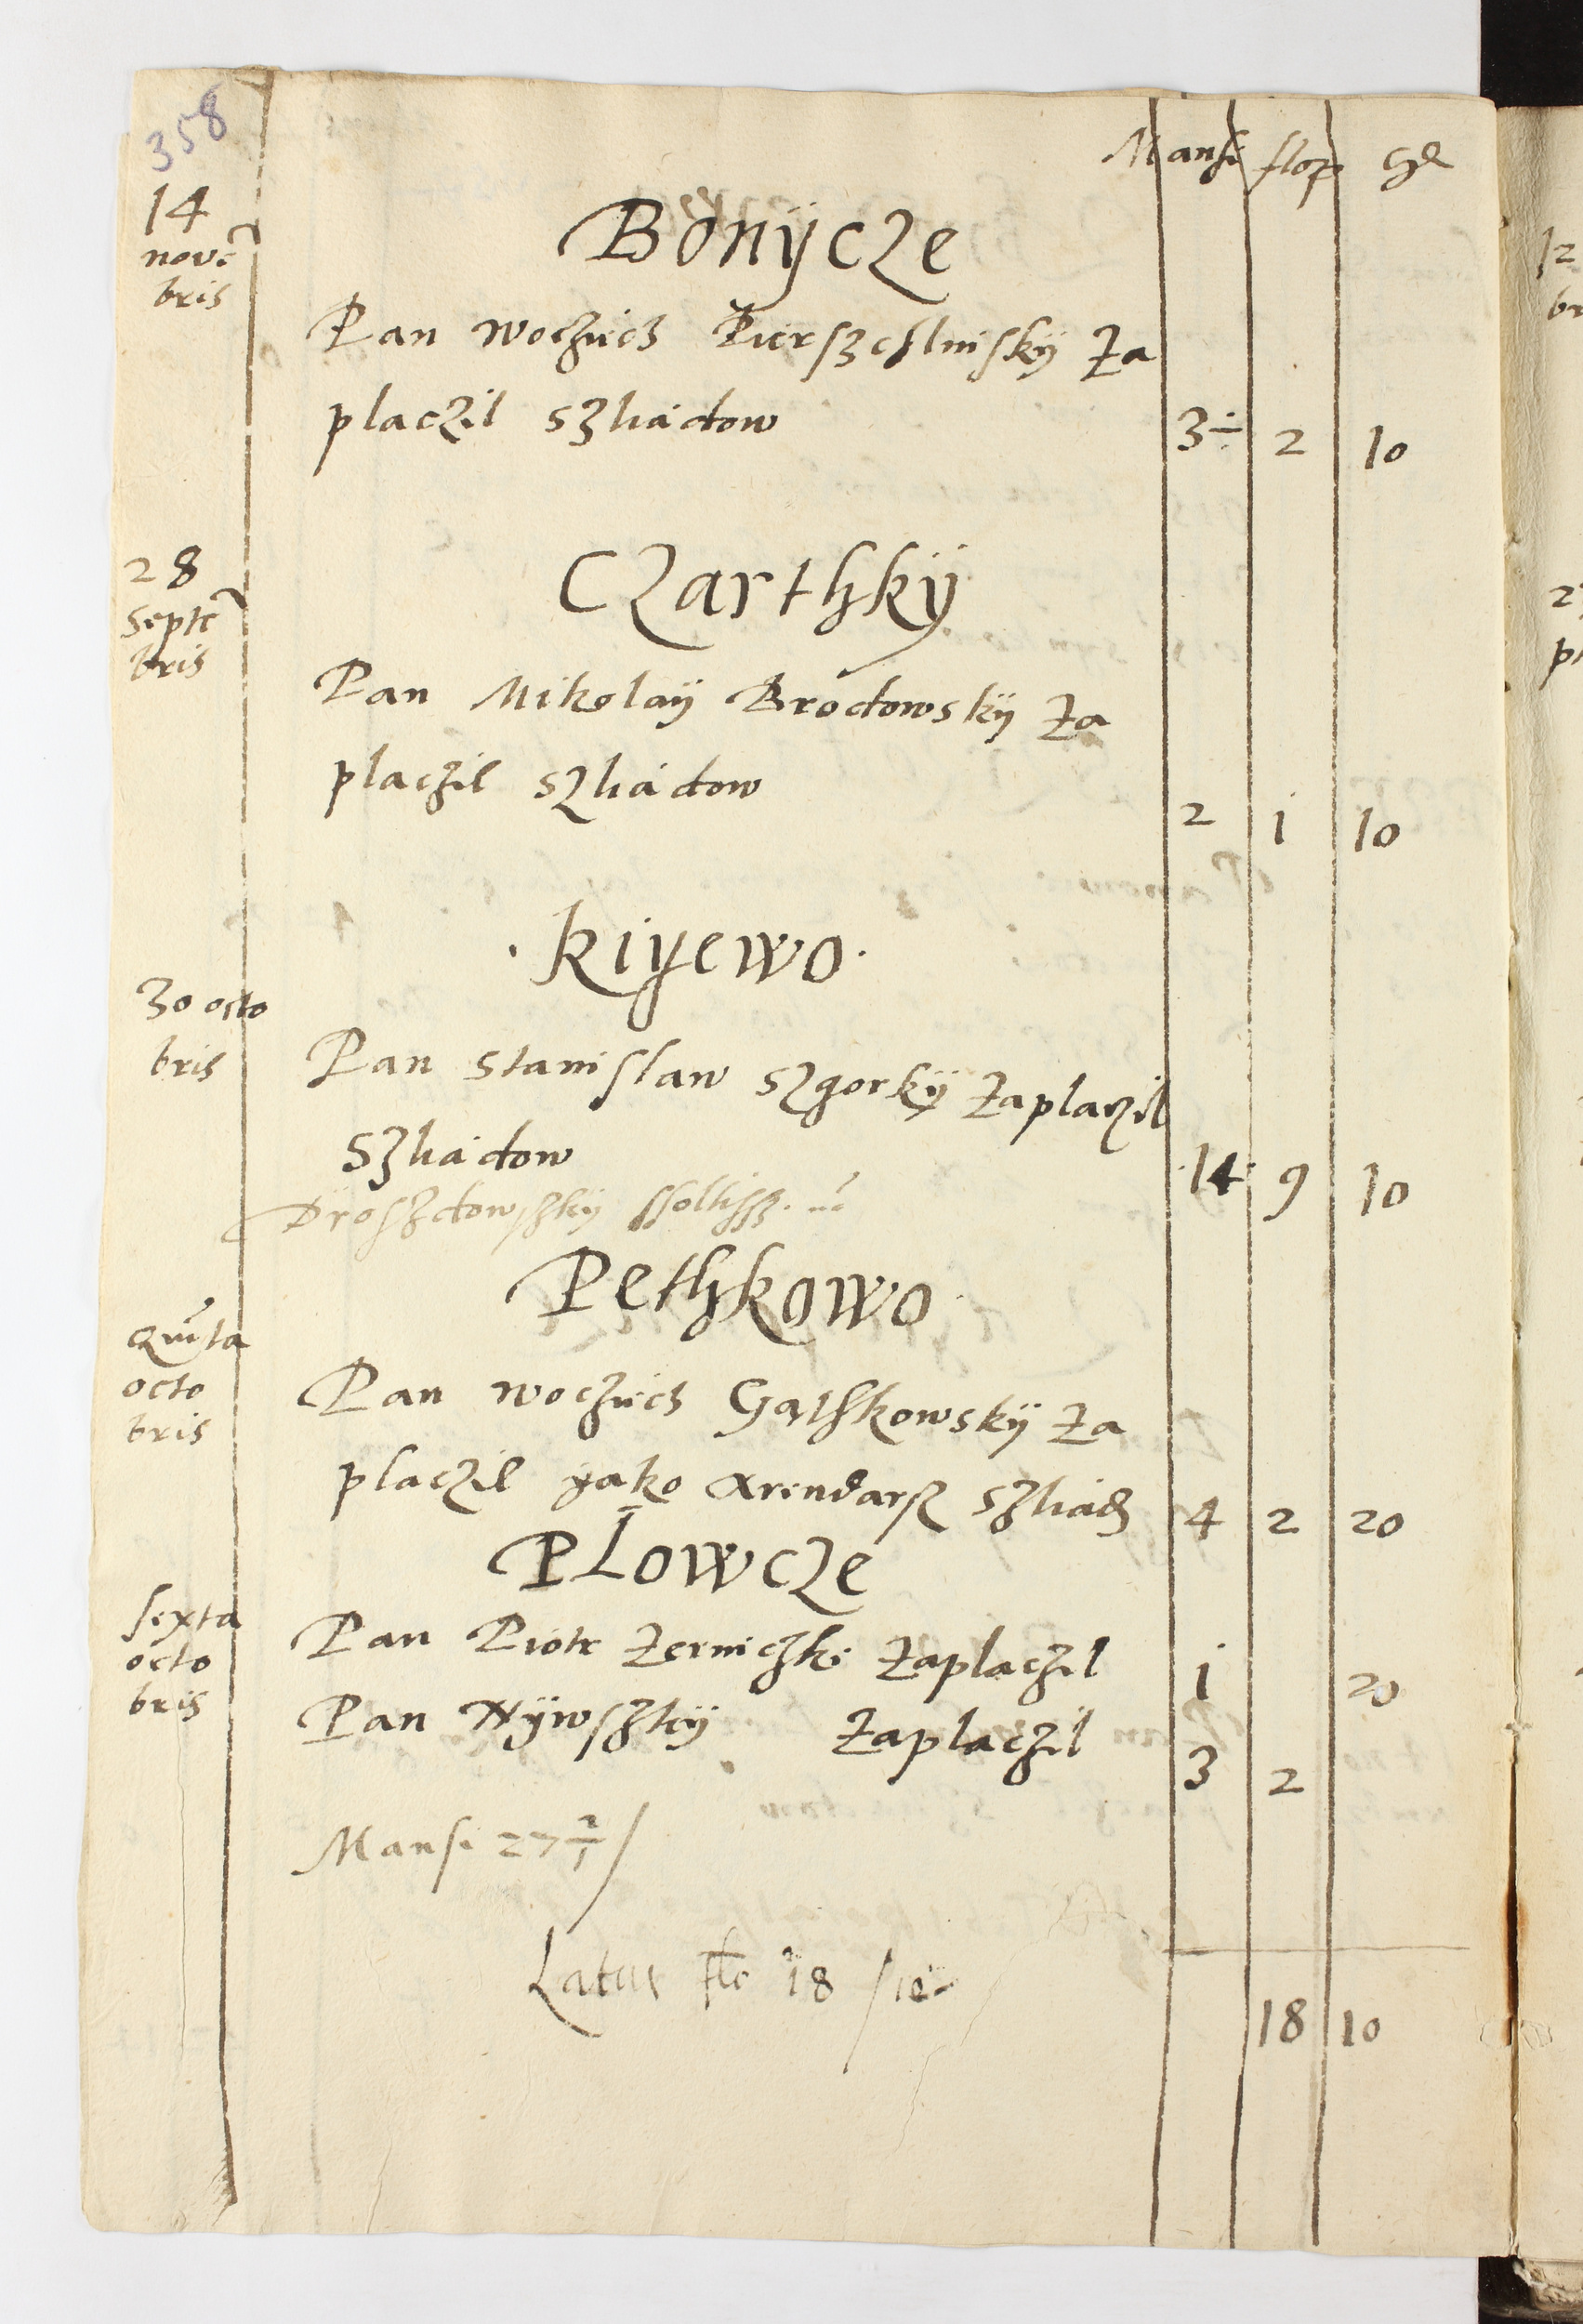 358
Mansi flop gR
14
nove
bris
Bonÿcze
Pan wocziech Pierszchlinskÿ Za
placzil szliadow 3÷ 2 10
28
Septe
bris
CZarthkÿ
Pan Mikolaÿ Brodowskÿ Za
placzil szliadow 2 1 10
Kiÿewo
30 octo
bris
Pan Stanislaw Szgorkÿ Zaplaczil
Szliadow 14 9 10
Droszdowszkÿ ssoltissz
Pethkowo
Quinta
octo
bris
Pan wocziech Gathkowskÿ Za
placzil yako Arendarz szliadz 4 2 20
PLowcze
sexta
octo
bris
Pan Piotr Zerniczki Zaplaczil 1 20
Pan Zaplaczil 3 2
Mansi 27
Latus flo 18 / 10
18 10
12
br